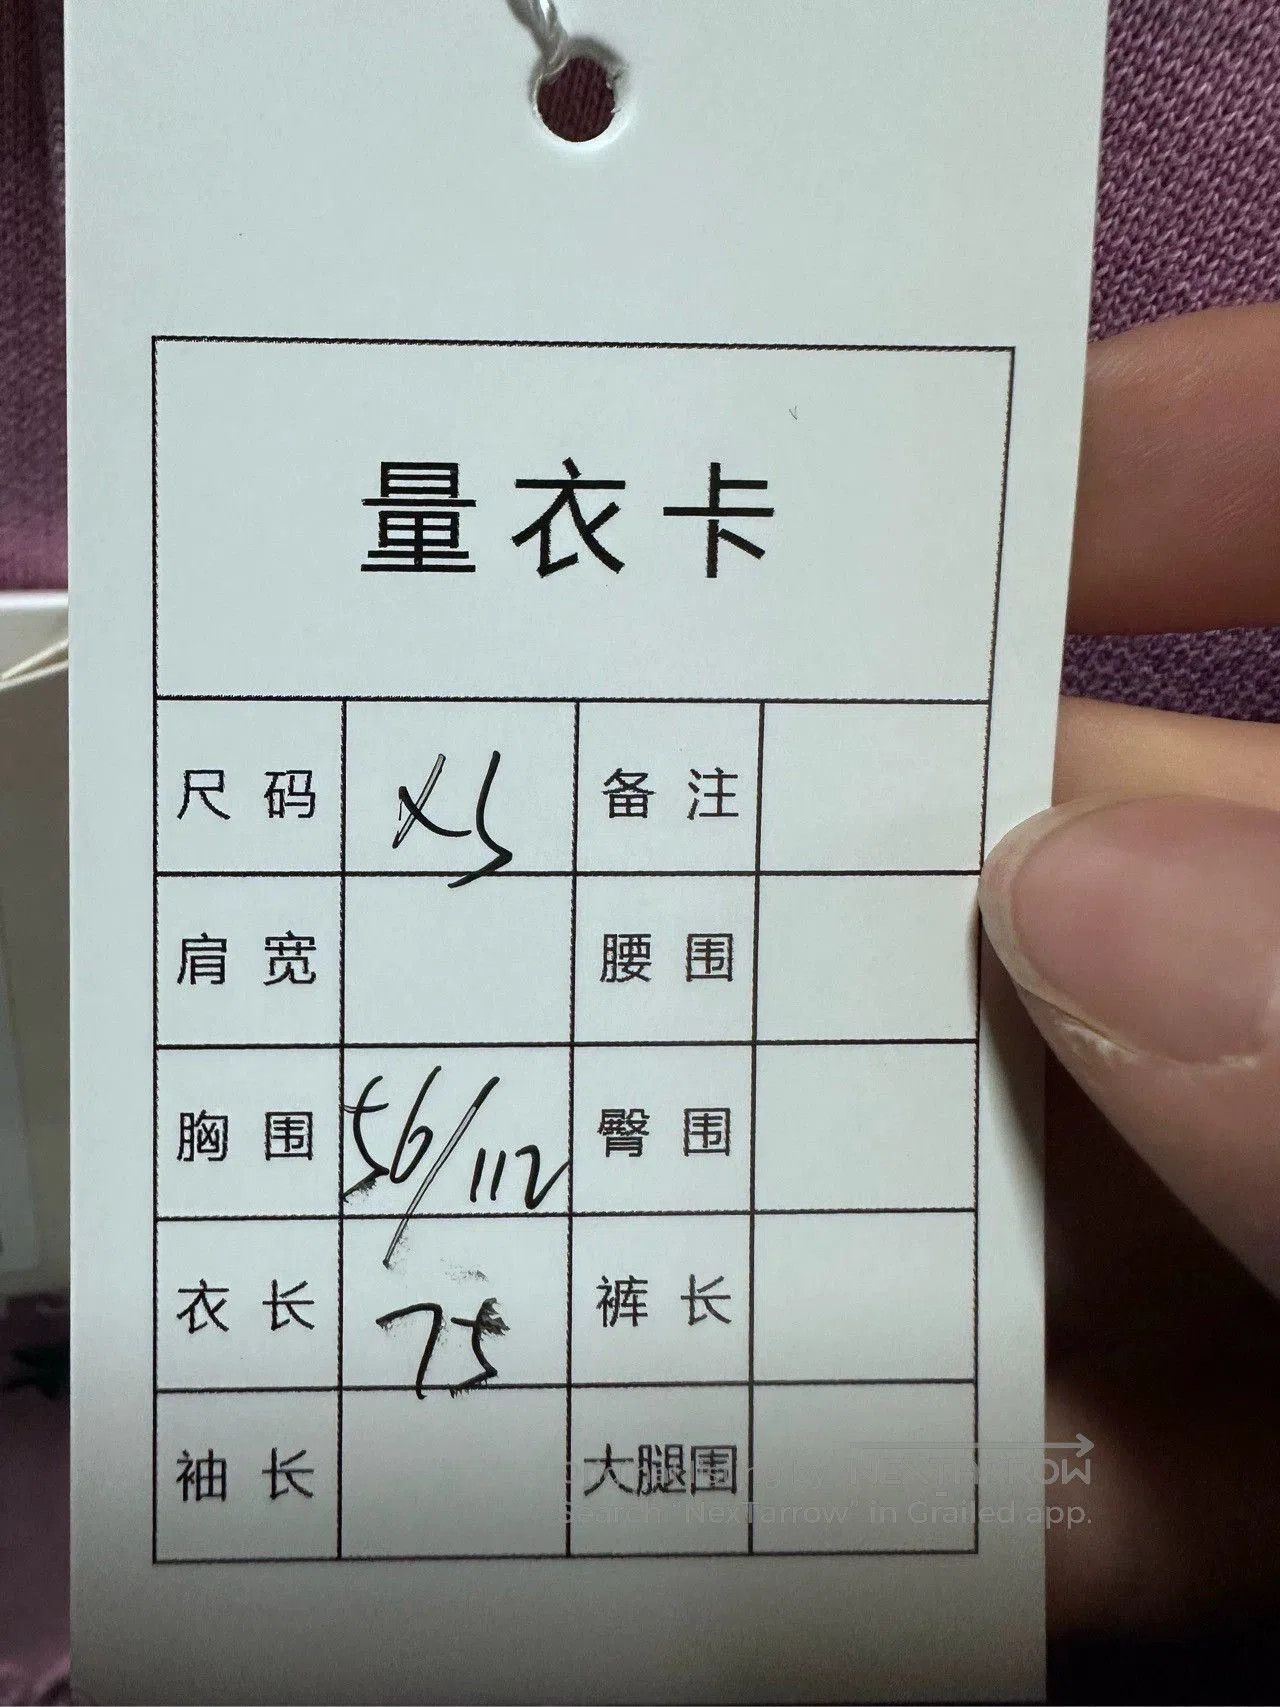 量衣卡
尺码 XS 备注
肩宽 腰围
胸围 56/112 臀围
衣长 75 裤长
袖长 大腿围
Search "NexTarrow" in Grailed app.